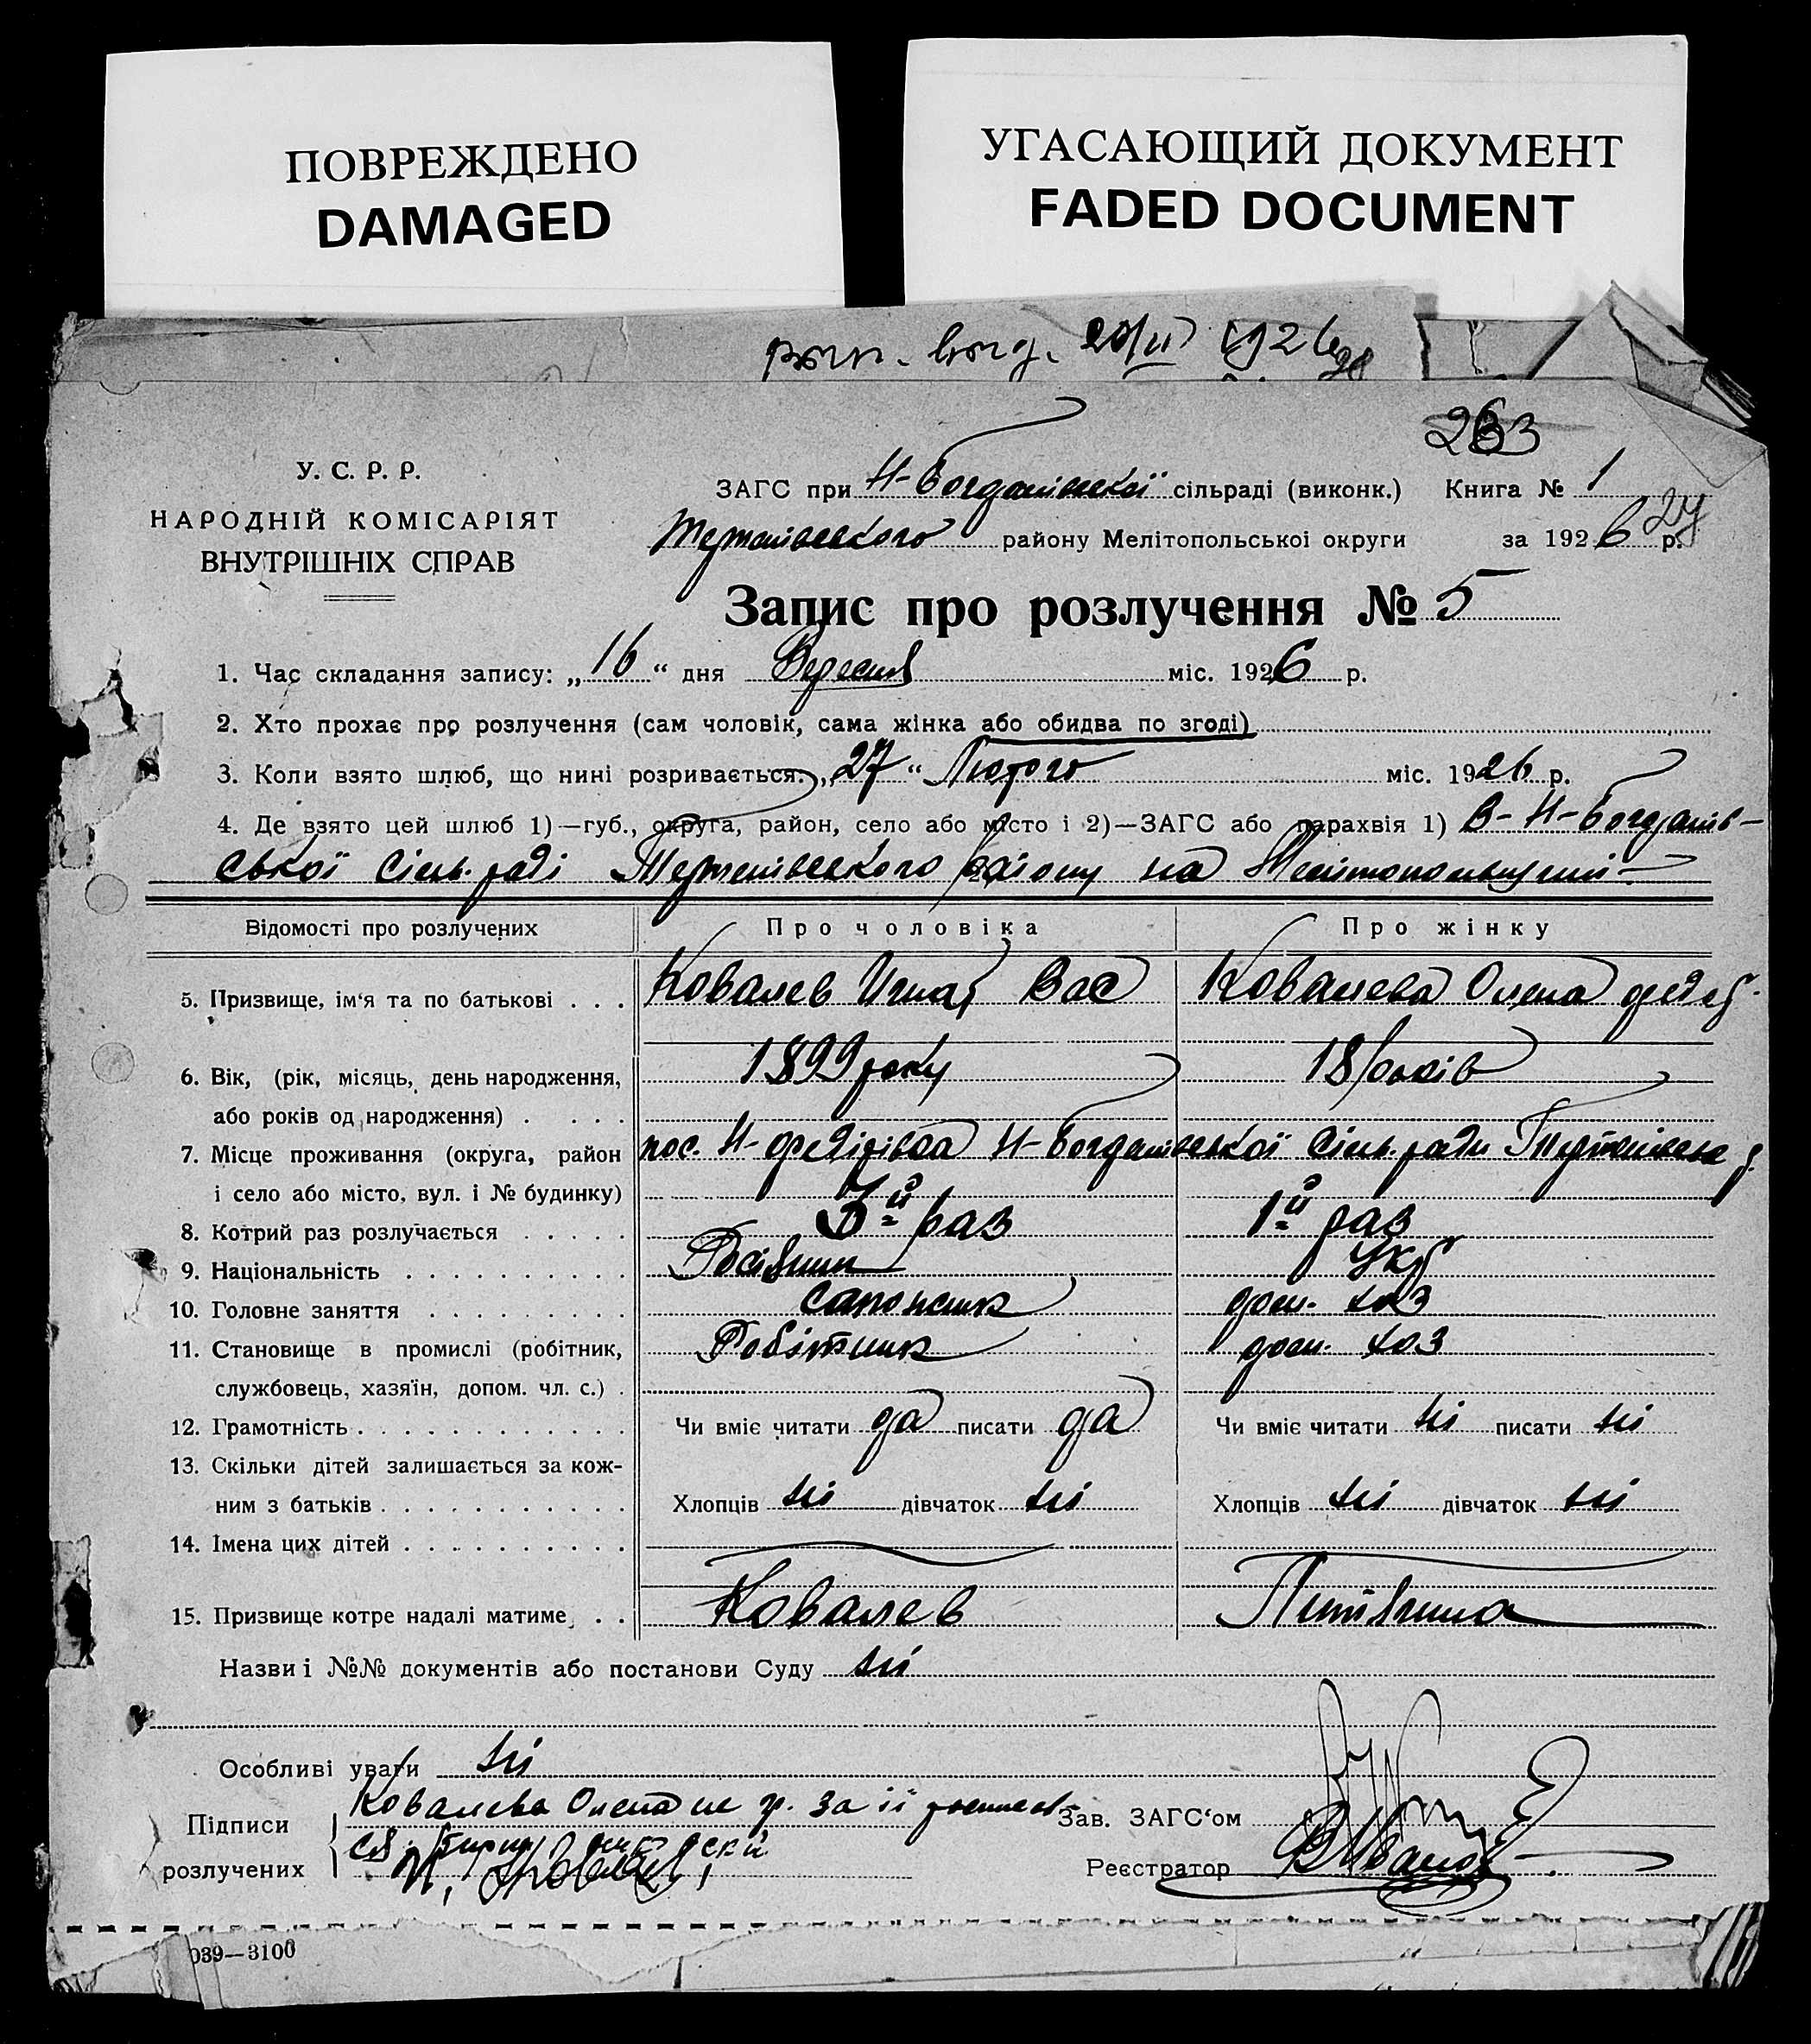 ПОВРЕЖДЕНО
DAMAGED
УГАСАЮЩИЙ ДОКУМЕНТ
FADED DOCUMENT
1926
263
У. С. Р. Р.
НАРОДНІЙ КОМІСАРІЯТ
ВНУТРІШНІХ СПРАВ
ЗАГС при Н-Богданівської сільраді (виконк.) Книга № 1
27
району Мелітопольської округи за 1926 р.
Запис про розлучення № 5
1. Час складання запису: „16“ дня Вересня міс. 1926 р.
2. Хто прохає про розлучення (сам чоловік, сама жінка або обидва по згоді)
3. Коли взято шлюб, що нині розривається: „27“ Лютого міс. 1926 р.
4. Де взято цей шлюб 1)—губ., округа, район, село або місто і 2)—ЗАГС або парахвія 1) В- Н-Богданів-
ської Сіль.раді Терпеніевского району на Мелітопольщині
Відомості про розлучених Про чоловіка Про жінку
5. Призвище, ім'я та по батькові . . . Ковалев Игнат Вас Ковалева Олена Федор.
6. Вік, (рік, місяць, день народження, 1899 року 18 років
або років од народження) . . . .
7. Місце проживання (округа, район пос. Н-Федорівка Н-Богданівської Сіль.ради
і село або місто, вул. і № будинку)
8. Котрий раз розлучається . . . . . 3й раз 1й раз
9. Національність . . . . . . . . . . Росіянин Укр
10. Головне заняття . . . . . . . . . Сапожник дом. хоз
11. Становище в промислі (робітник, Робітник дом. хоз
службовець, хазяїн, допом. чл. с.) .
12. Грамотність . . . . . . . . . . . . Чи вміє читати да писати да Чи вміє читати ні писати ні
13. Скільки дітей залишається за кож-
ним з батьків . . . . . . . . . . . Хлопців ні дівчаток ні Хлопців ні дівчаток ні
14. Імена цих дітей . . . . . . . . . .
15. Призвище котре надалі матиме . . Ковалев
Назви і №№ документів або постанови Суду ні
Особливі уваги ні
Підписи
розлучених
Ковалева Олена не гр. за її
Зав. ЗАГС'ом
Реєстратор
039—3100